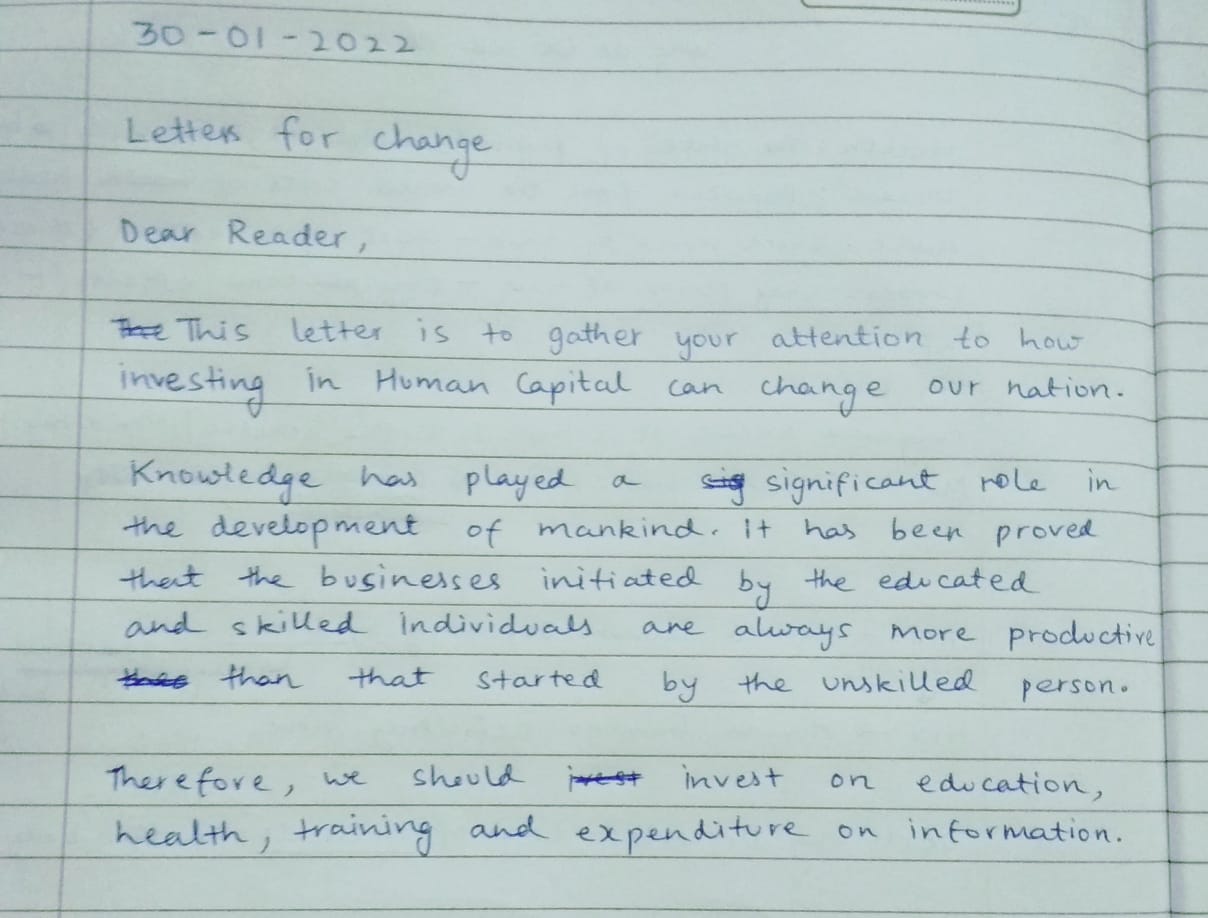 30-01-2022
Letters for change
Dear Reader,
This letter is to gather your attention to how
investing in Human Capital can change our nation.
Knowledge has played a significant role in
the development of mankind. It has been proved
that the businesses initiated by the educated
and skilled individuals are always more productive
than that started by the unskilled person.
Therefore, we should invest on education,
health, training and expenditure on information.